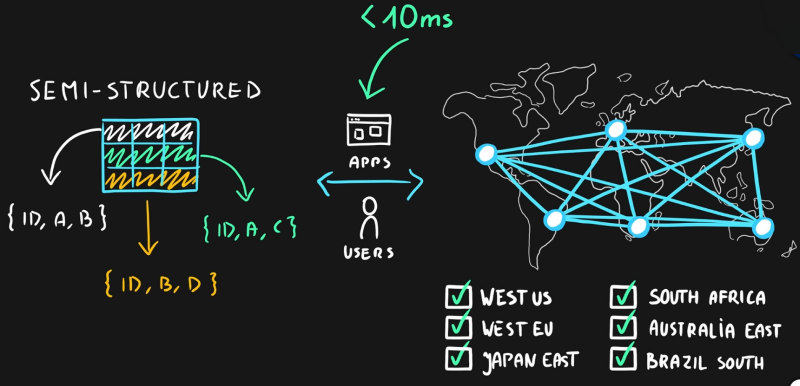 <10ms
SEMI-STRUCTURED
{ID, A, B}
{ID, A, C}
{ID, B, D}
APPS
USERS
WEST US
WEST EU
JAPAN EAST
SOUTH AFRICA
AUSTRALIA EAST
BRAZIL SOUTH